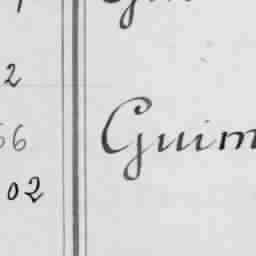 2
66
Guim
02